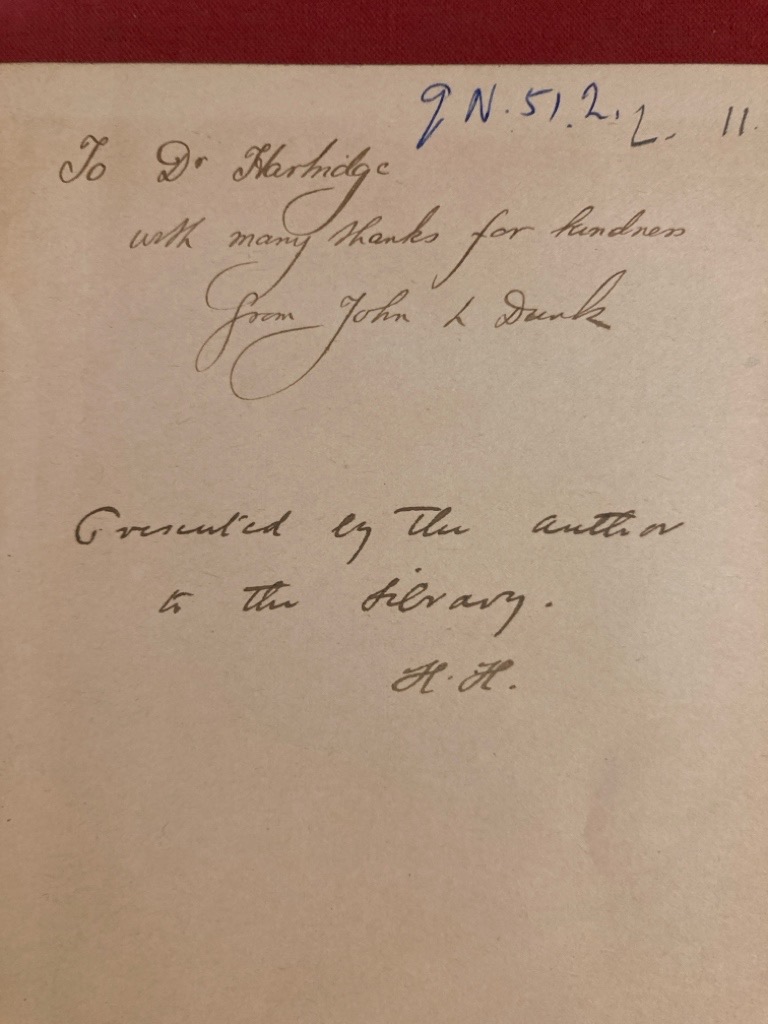 9 N. 51. 2. 2. 11.
To Dr Hartridge
with many thanks for kindness
from John L Dunk
Presented by the author
to the library.
H. H.